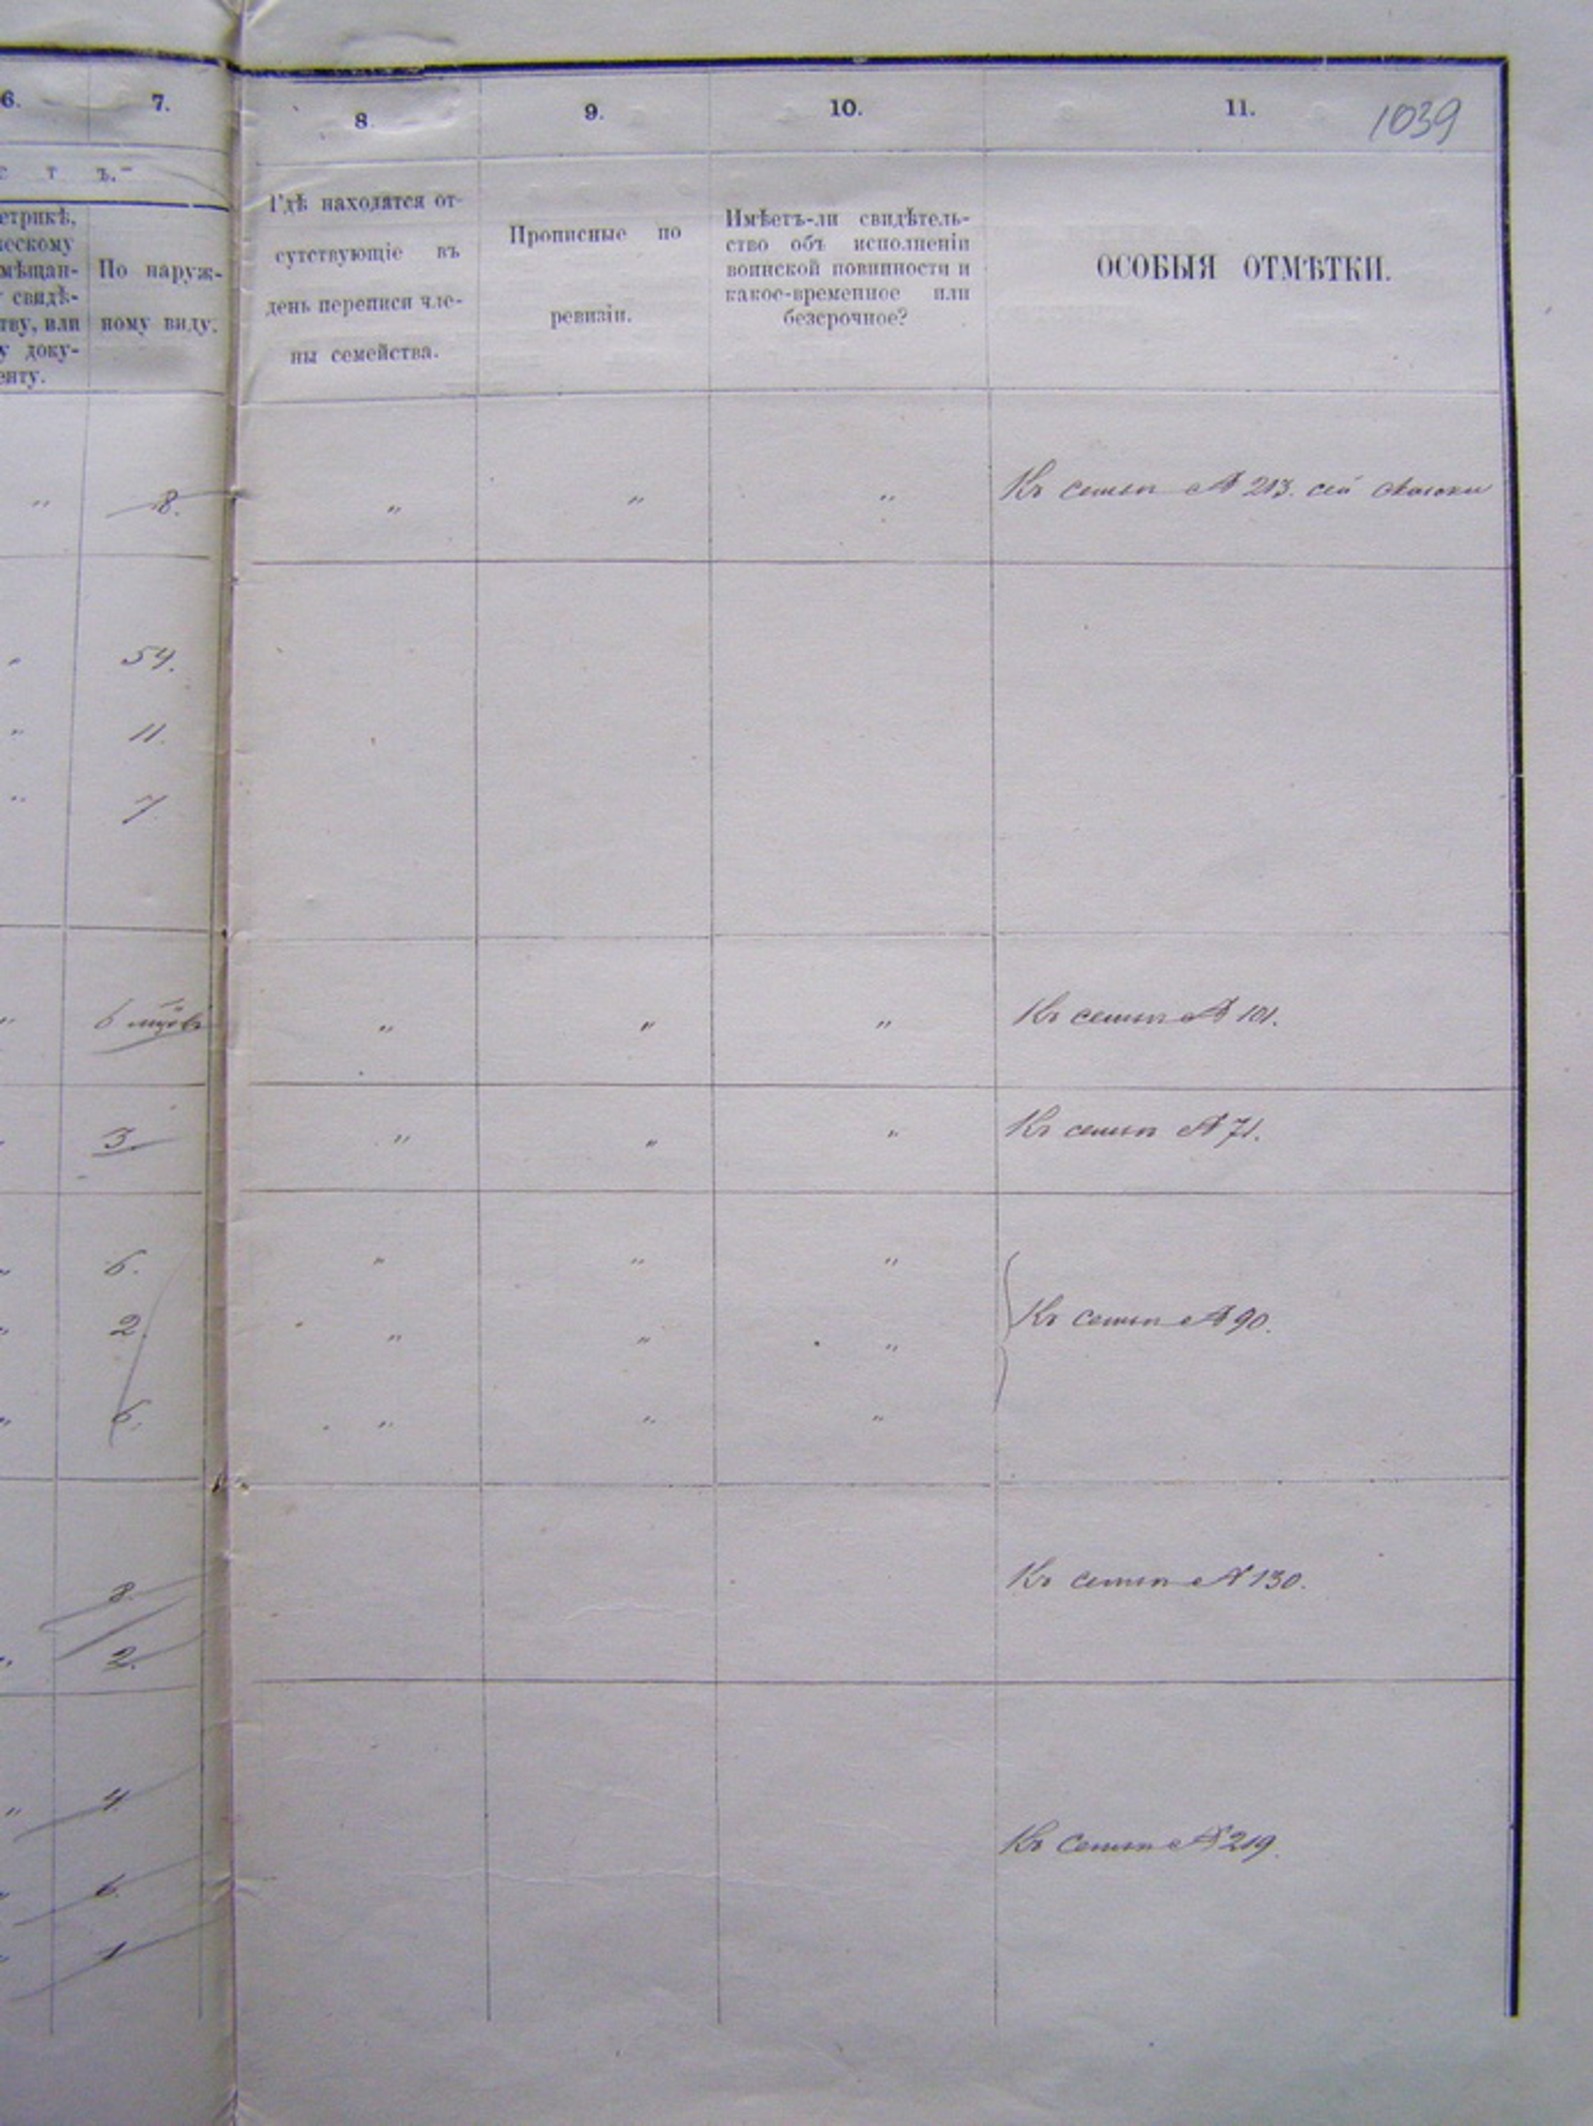 6.
7.
8.
9.
10.
11.
1039
с т ъ.
етрикѣ,
ческому
мѣщан-
свидѣ-
тву, или
у доку-
енту.
По наруж-
ному виду.
Гдѣ находятся от-
сутствующіе въ
день переписи чле-
ны семейства.
Прописные по
ревизіи.
Имѣетъ-ли свидѣтель-
ство объ исполненіи
воинской повинности и
какое-временное или
безсрочное?
ОСОБЫЯ ОТМѢТКИ.
" 8. " " " Къ семьѣ № 213. сей
" 54.
" 11.
" 7
" 6 " " " Къ семьѣ № 101.
" 3 " " " Къ семьѣ № 71.
" " " "
" 2. " " " Къ семьѣ № 90.
" " " "
Къ семьѣ № 130.
" 2.
" 4.
Къ семьѣ № 219.
" 6.
" 1